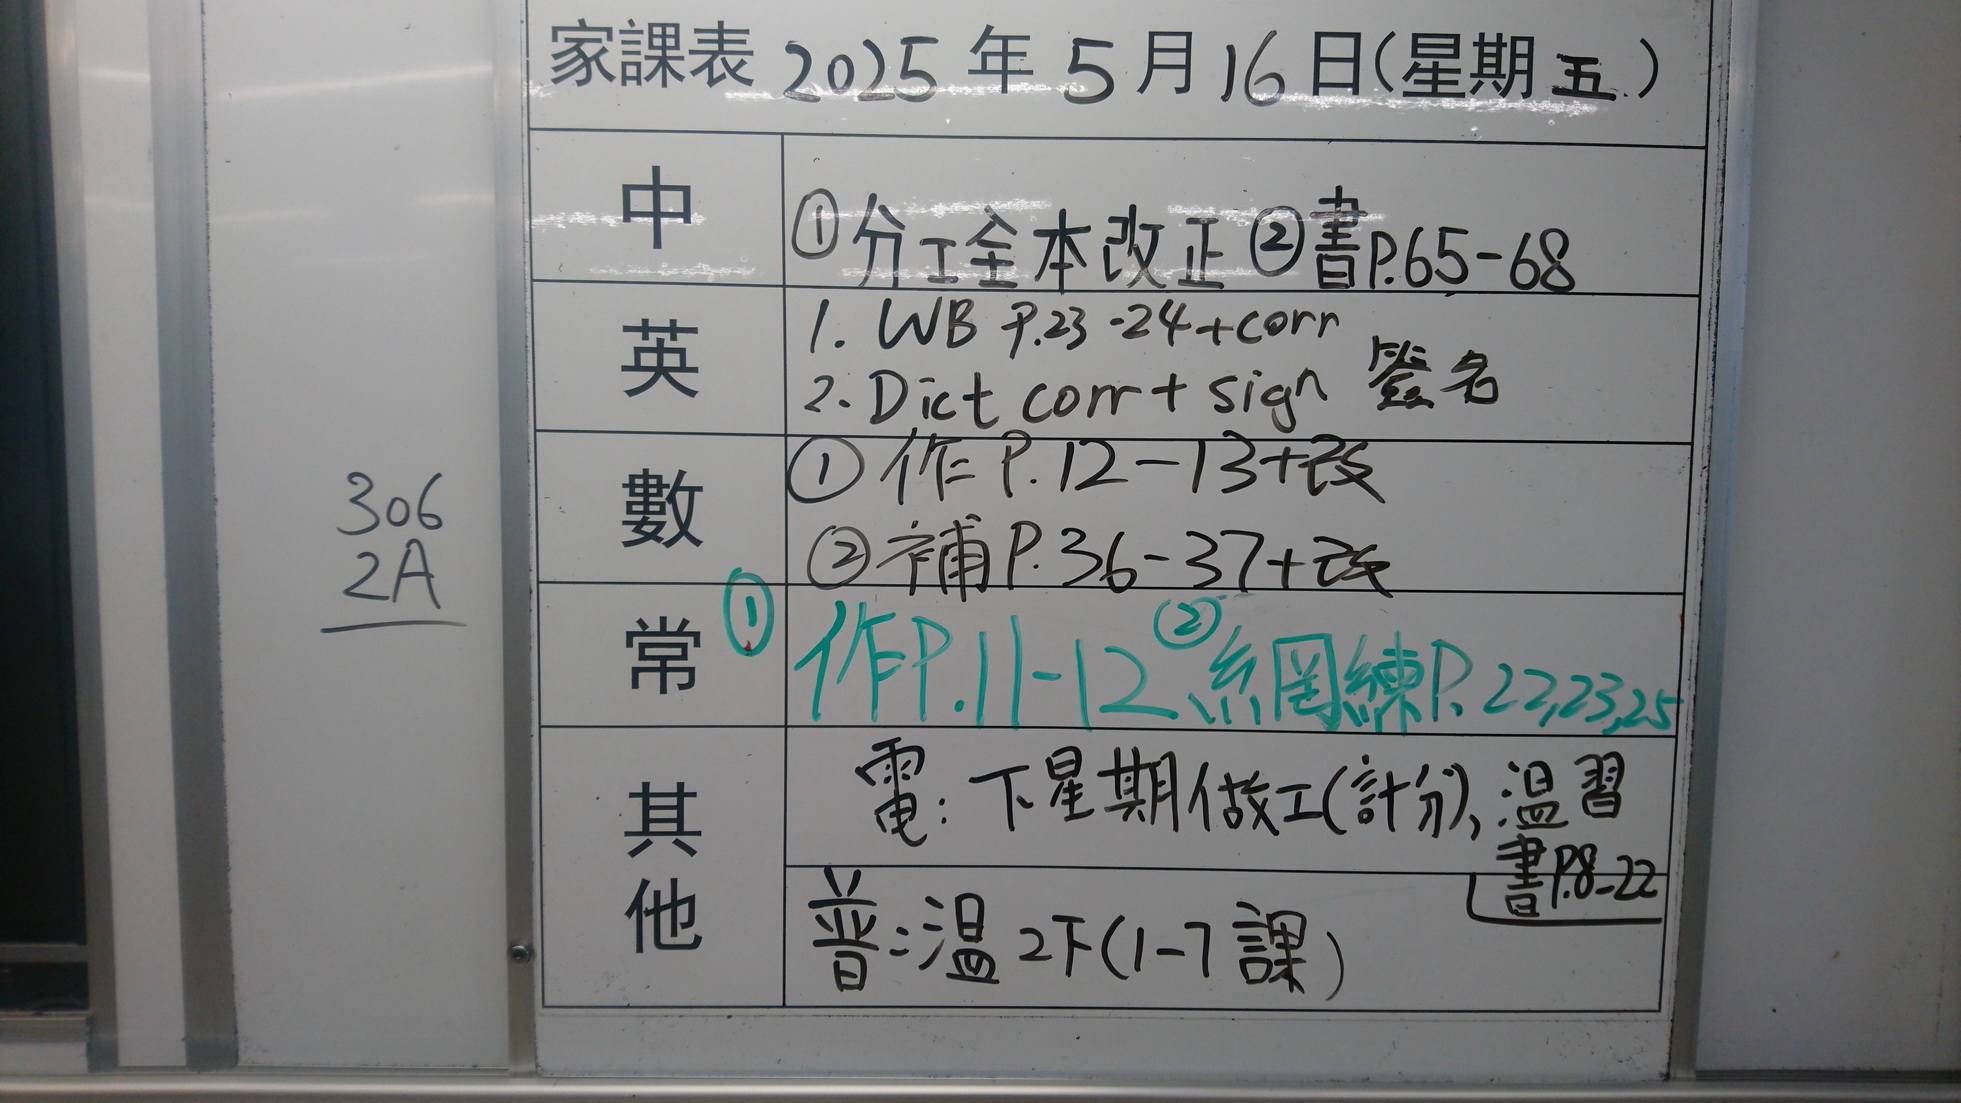 家課表 2025 年 5 月 16 日(星期五)
中 ①分工全本改正 ②書P.65-68
英 1. WB P.23-24+corr
2. Dict corr + sign 簽名
數 ① 作 P.12-13+改
② 補 P.36-37+改
常 ① 作P.11-12 ② 綱練P. 22,23,25
其他
電: 下星期做工(計分), 溫習
書P.8-22
普: 溫 2下(1-7 課)
306
2A